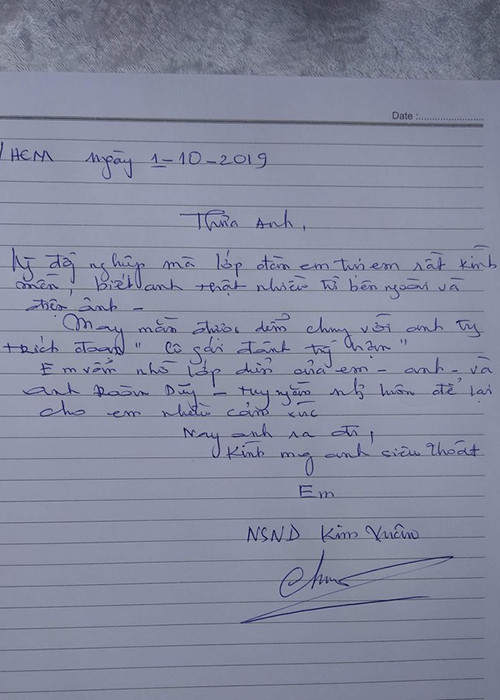 Date :
/HCM ngày 1-10-2019
Thưa Anh,
đồng nghiệp mà lớp đàn em tụi em rất kính
mến, biết anh thật nhiều từ bên ngoài và
điện ảnh -
May mắn được diễn chung với anh
trích đoạn "Cô gái đánh trận"
Em vẫn nhớ lớp diễn của em - anh - và
anh Đoàn Dũng - tuy ngắn luôn để lại
cho em nhiều cảm xúc
Nay anh ra đi,
Kính mg anh siêu thoát
Em
NSND Kim Xuân